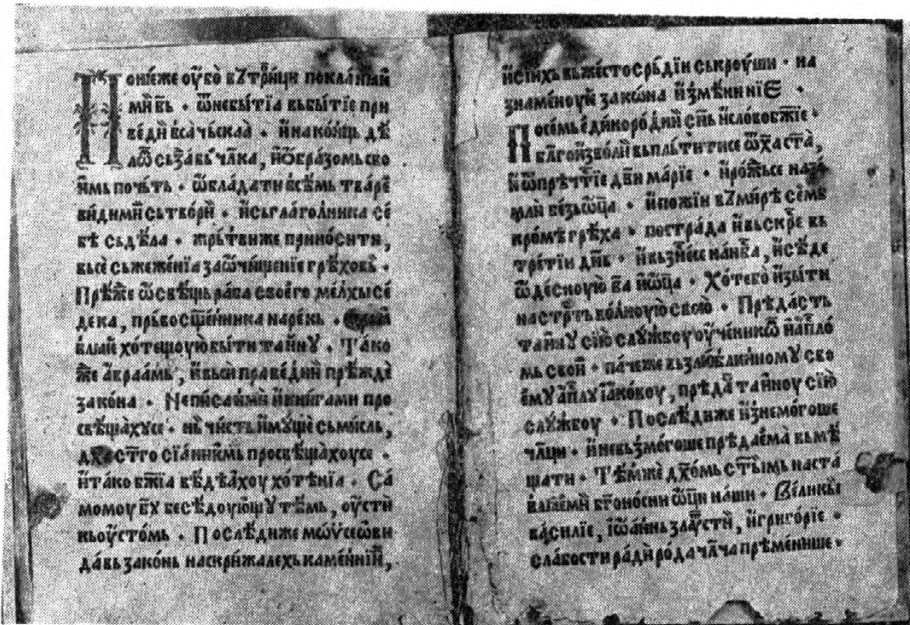 Понеже оубо въ тро́ици покланꙗй
мй бъ · ѿнебытїа вьбытїе при
веди всачьскаа · и наконць дѣ
лѡⷭ сьзⷣа быⷭ чл҃ка, и ѡбразомь сво
имь почьть · ѡбладати всѣмь тваре
видимїй сьтвори · и сьглаголника се
бѣ сьдѣла · жрьтвиже приносити,
вьсесьжеженїа заѡчищенїе грѣховь ·
Прѣⷤе ѡсвѣщь раба своего мелхысе
дека, прьвосщ҃енника нарекь ·
хотещоую быти таину · Тако
же авраамь, и вьси праведнїй прѣжде
закона · Неписанїмй и книгами про
свѣщахусе · нѣ чисть имуще сьмисль,
дх҃а ст҃го сїанїемь просвѣщахоусе ·
и тако бж҃їа вѣдѣахоу хотѣнїа · Са
момоу бг҃у бесѣдоующу тѣмь, оусти
кьоустомь · Послѣдиже мѡѵсеѡви
давь законь наскрижалехь каменнїй,
и сїихь вьжестосрьдїи ськроуши · на
знаменоуѥ закѡна измѣнѥнїе ·
Посемь единородний сн҃ь и слово бж҃їе ·
бл҃гоизволй вьпльтитисе ѿдх҃а ст҃а,
и ѿпрѣчтⷭїе дв҃и марїе · и рожⷣьсе на зе
мли безьѡц҃а · и поживи вь мирѣ семь
кромѣ грѣха · пострада и вьскрⷭе вь
третїи дн҃ь · и вьзнесе на нб҃са, и сѣде
ѡдесноую ба҃ и ѡц҃а · Хотебо изыти
на стрⷭть вол̾ноую свою · Прѣдасть
таинꙋ сїю слоужбоу оученикѡⷨ и апⷭлѡ
мь свой · паче же вьзлюбленномꙋ сво
емꙋ апⷭлꙋ їаковоу, прѣдⷭа таиноу сїю
слоужбоу · Послѣдиже изнемогоше
чл҃ци · и невьзмогоше прѣдаема вьмѣ
щати · Тѣмже дх҃омь ст҃ымь наста
влꙗеми бг҃оносни ѡц҃и наши · Великы
василїе, їѡаннь златⷭоустй, и григорїе ·
слабости ради рода чл҃ча прѣменише ·